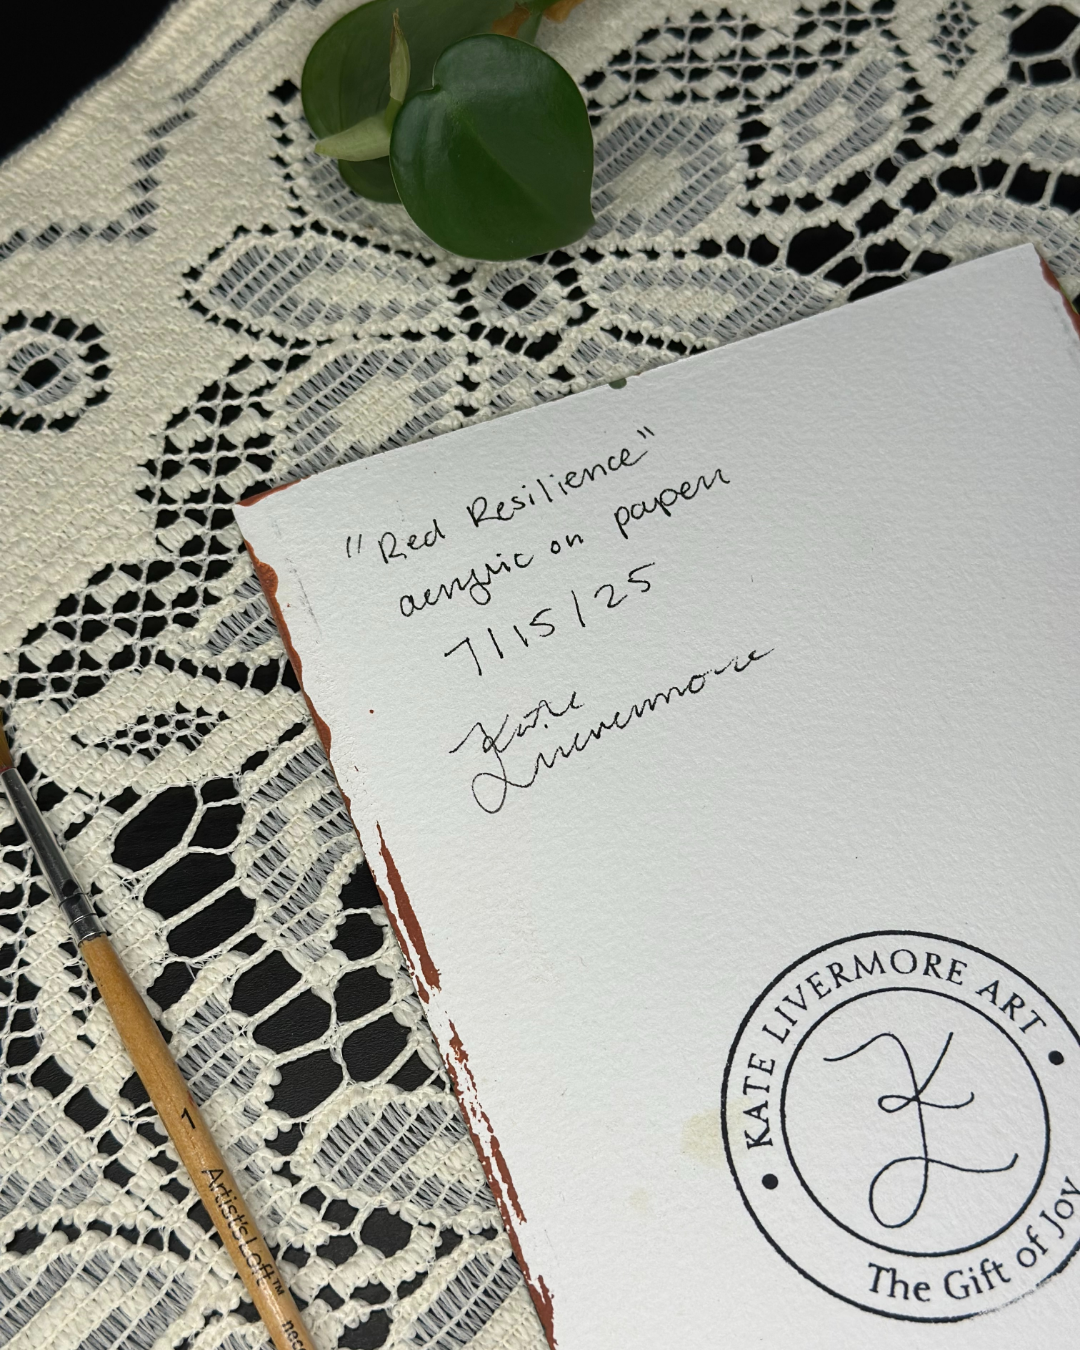 "Red Resilience"
acrylic on paper
7/15/25
Kate
Livermore
KATE LIVERMORE ART
KL
The Gift of Joy
1
Artist's Loft™